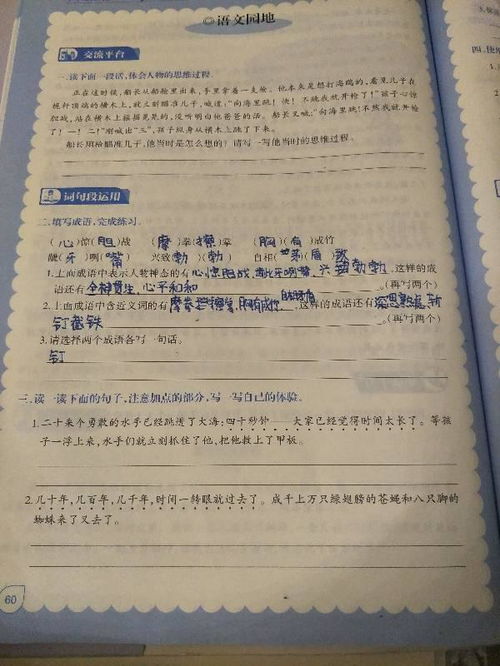 语文园地
交流平台
一、读下面一段话,体会人物的思维过程。
正在这时候,船长从船舱里出来,手里拿着一支枪。他本来是想打海鸥的,看见儿子在
桅杆顶端的横木上,就立刻瞄准儿子,喊道:“向海里跳!快!不跳我就开枪了!”孩子心惊
胆战,站在横木上摇摇晃晃的,没听明白他爸爸的话。船长又喊:“向海里跳!不然我就开枪
了!一!二!”刚喊出“三”,孩子纵身从横木上跳了下来。
船长用枪瞄准儿子,他当时是怎么想的?请写一写他当时的思维过程。
词句段运用
二、填写成语,完成练习。
(心)惊(胆)战 (摩)拳(擦)掌 (胸)(有)成竹
龇(牙)咧(嘴) 兴致(勃)(勃) 自相(矛)(盾)
1.上面成语中表示人物神态的有心惊胆战 龇牙咧嘴 兴致勃勃,这样的成
语还有 心平和和 。(再写两个)
2.上面成语中含近义词的有摩拳擦掌 胸有成竹,这样的成语还有
钉截铁 。(再写两个)
3.请选择两个成语各写一句话。
钉
三、读一读下面的句子,注意加点的部分,写一写自己的体验。
1.二十来个勇敢的水手已经跳进了大海:四十秒钟——大家已经觉得时间太长了。等孩
子一浮上来,水手们就立刻抓住了他,把他救上了甲板。
2.几十年,几百年,几千年,时间一转眼就过去了。成千上万只绿翅膀的苍蝇和八只脚的
蜘蛛来了又去了。
60